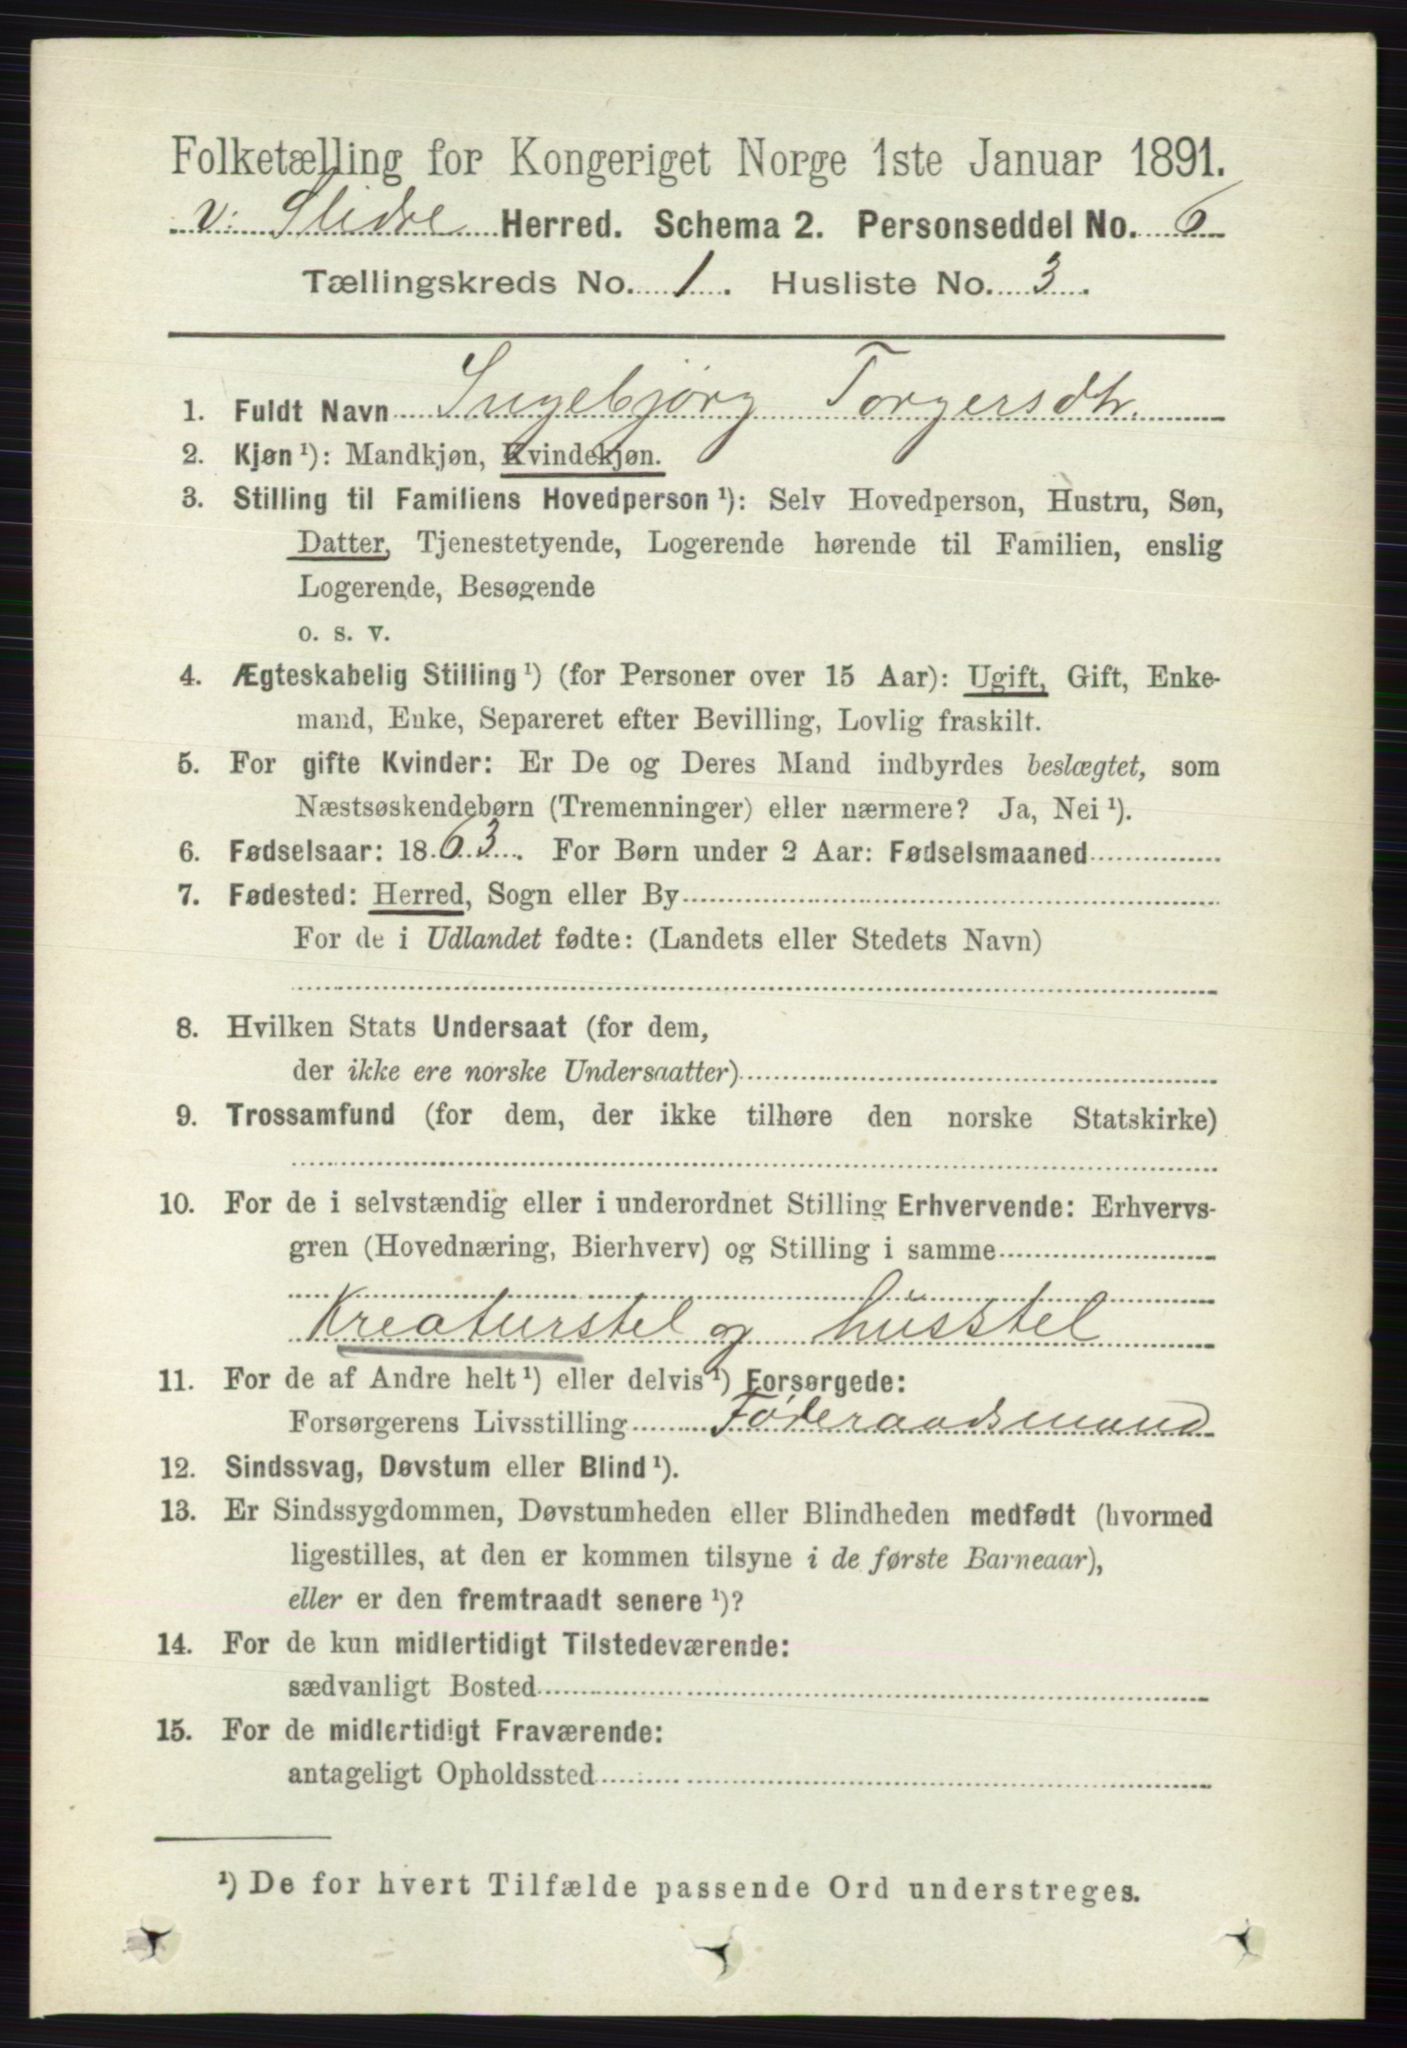 Folketælling for Kongeriget Norge 1ste Januar 1891.
V. Slidre Herred. Schema 2. Personseddel No. 6
Tællingskreds No. 1. Husliste No. 3.
1. Fuldt Navn Ingebjørg Torgersdtr.
2. Kjøn ¹): Mandkjøn, Kvindekjøn.
3. Stilling til Familiens Hovedperson ¹): Selv Hovedperson, Hustru, Søn,
Datter, Tjenestetyende, Logerende hørende til Familien, enslig
Logerende, Besøgende
o. s. v.
4. Ægteskabelig Stilling ¹) (for Personer over 15 Aar): Ugift, Gift, Enke-
mand, Enke, Separeret efter Bevilling, Lovlig fraskilt.
5. For gifte Kvinder: Er De og Deres Mand indbyrdes beslægtet, som
Næstsøskendebørn (Tremenninger) eller nærmere? Ja, Nei ¹).
6. Fødselsaar: 1863. For Børn under 2 Aar: Fødselsmaaned
7. Fødested: Herred, Sogn eller By
For de i Udlandet fødte: (Landets eller Stedets Navn)
8. Hvilken Stats Undersaat (for dem,
der ikke ere norske Undersaatter)
9. Trossamfund (for dem, der ikke tilhøre den norske Statskirke)
10. For de i selvstændig eller i underordnet Stilling Erhvervende: Erhvervs-
gren (Hovednæring, Bierhverv) og Stilling i samme
Kreaturstel og husstel
11. For de af Andre helt ¹) eller delvis ¹) Forsørgede:
Forsørgerens Livsstilling Føderaadsmand
12. Sindssvag, Døvstum eller Blind ¹).
13. Er Sindssygdommen, Døvstumheden eller Blindheden medfødt (hvormed
ligestilles, at den er kommen tilsyne i de første Barneaar),
eller er den fremtraadt senere ¹)?
14. For de kun midlertidigt Tilstedeværende:
sædvanligt Bosted
15. For de midlertidigt Fraværende:
antageligt Opholdssted
¹) De for hvert Tilfælde passende Ord understreges.